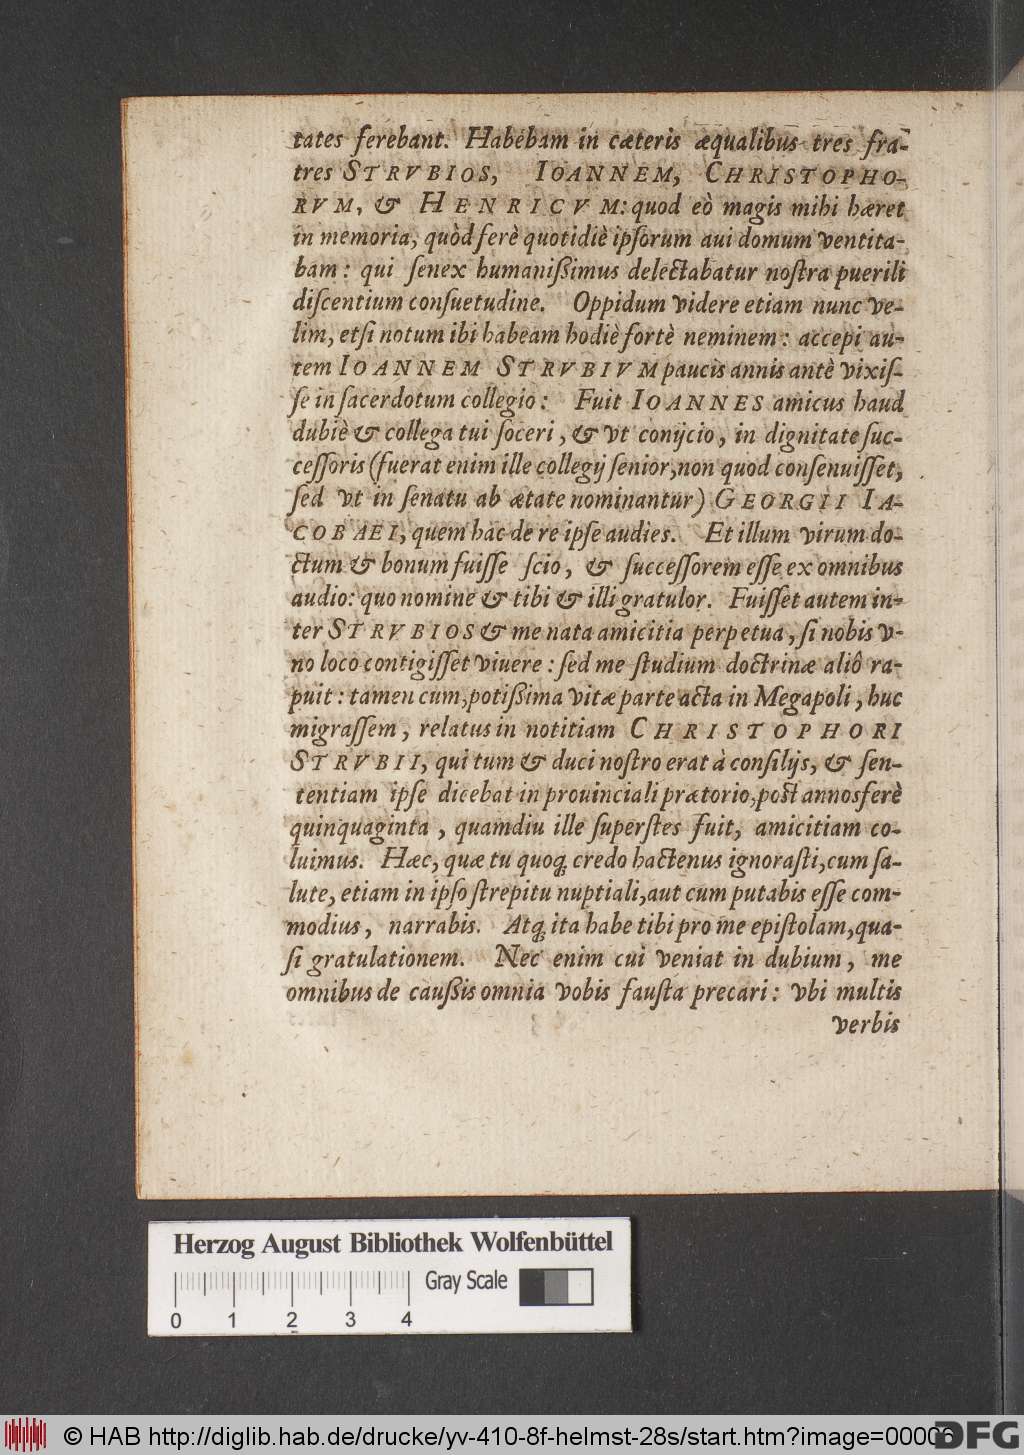 tates ferebant. Habebam in cæteris æqualibus tres fra-
tres STRVBIOS, IOANNEM, CHRISTOPHO-
RVM, & HENRICVM: quod eò magis mihi hæret
in memoria, quòd ferè quotidiè ipſorum aui domum ventita-
bam: qui ſenex humanißimus delectabatur noſtra puerili
diſcentium conſuetudine. Oppidum videre etiam nunc ve-
lim, etſi notum ibi habeam hodiè fortè neminem: accepi au-
tem IOANNEM STRVBIVM paucis annis antè vixiſ-
ſe in ſacerdotum collegio: Fuit IOANNES amicus haud
dubiè & collega tui ſoceri, & vt conijcio, in dignitate ſuc-
ceſſoris (fuerat enim ille collegij ſenior, non quod conſenuiſſet,
ſed vt in ſenatu ab ætate nominantur) GEORGII IA-
COBAEI, quem hac de re ipſe audies. Et illum virum do-
ctum & bonum fuiſſe ſcio, & ſucceſſorem eſſe ex omnibus
audio: quo nomine & tibi & illi gratulor. Fuiſſet autem in-
ter STRVBIOS & me nata amicitia perpetua, ſi nobis v-
no loco contigiſſet viuere: ſed me ſtudium doctrinæ aliô ra-
puit: tamen cum, potißima vitæ parte acta in Megapoli, huc
migraſſem, relatus in notitiam CHRISTOPHORI
STRVBII, qui tum & duci noſtro erat à conſilijs, & ſen-
tentiam ipſe dicebat in prouinciali prætorio, poſt annos ferè
quinquaginta, quamdiu ille ſuperſtes fuit, amicitiam co-
luimus. Hæc, quæ tu quoq; credo hactenus ignoraſti, cum ſa-
lute, etiam in ipſo ſtrepitu nuptiali, aut cum putabis eſſe com-
modius, narrabis. Atq; ita habe tibi pro me epiſtolam, qua-
ſi gratulationem. Nec enim cui veniat in dubium, me
omnibus de caußis omnia vobis fauſta precari: vbi multis
verbis
Herzog August Bibliothek Wolfenbüttel
Gray Scale
0 1 2 3 4
© HAB http://diglib.hab.de/drucke/yv-410-8f-helmst-28s/start.htm?image=00006
DFG